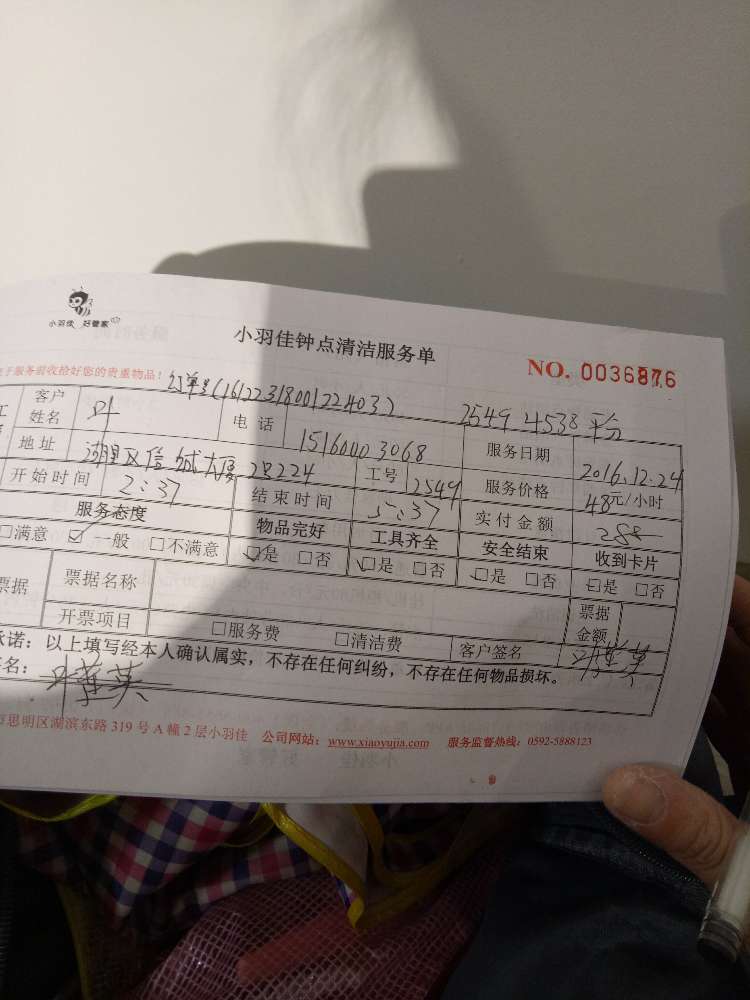 小羽佳 好管家
小羽佳钟点清洁服务单
NO. 0036876
服务前收拾好您的贵重物品! 订单号(16122318001224032 2549 4538 平分
客户姓名 叶 电话 15160003068 服务日期 2016.12.24
地址 湖里区信 大厦 2B224 工号 2549 服务价格 48元/小时
开始时间 2:37 结束时间 5:37 实付金额 288
服务态度 物品完好 工具齐全 安全结束 收到卡片
□满意 ☑一般 □不满意 ☑是 □否 ☑是 □否 ☑是 □否 ☑是 □否
票据 票据名称 票据金额
开票项目 □服务费 □清洁费 客户签名
承诺:以上填写经本人确认属实,不存在任何纠纷,不存在任何物品损坏。
名: 叶 英
市思明区湖滨东路 319 号 A 幢 2 层小羽佳 公司网站:www.xiaoyujia.com 服务监督热线:0592-5888123